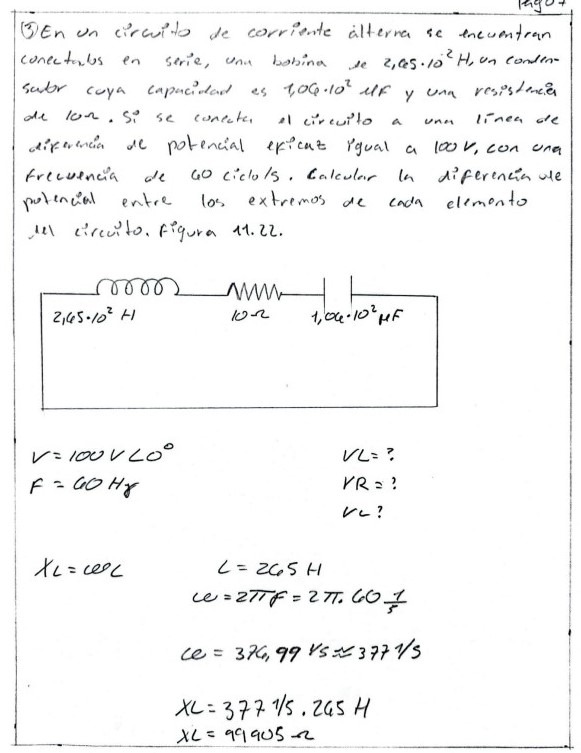 Pag 07
③ En un circuito de corriente alterna se encuentran
conectados en serie, una bobina de 2,65·10² H, un conden-
sador cuya capacidad es 1,06·10² µF y una resistencia
de 10Ω. Si se conecta el circuito a una línea de
diferencia de potencial eficaz igual a 100 V, con una
frecuencia de 60 ciclo/s. Calcular la diferencia de
potencial entre los extremos de cada elemento
del circuito. Figura 11.22.
2,65·10² H 10Ω 1,06·10² µF
V = 100 V ∠0° VL = ?
F = 60 Hz VR = ?
VC ?
XL = ωL L = 265 H
ω = 2πF = 2π. 60 1/s
ω = 376,99 1/s ≈ 377 1/s
XL = 377 1/s . 265 H
XL = 99905 Ω